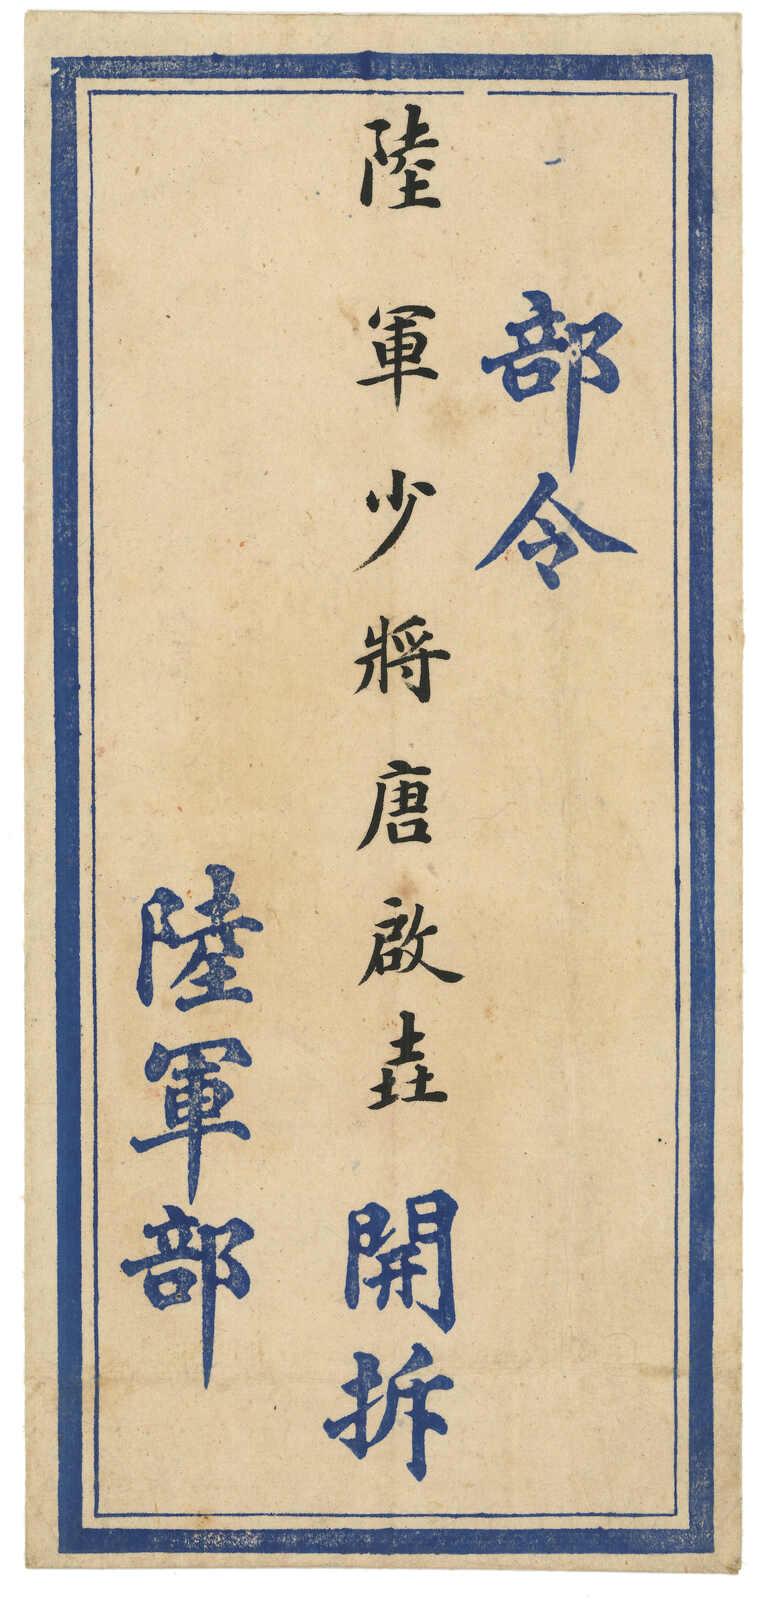 部令
陸軍少將唐啟垚開拆
陸軍部